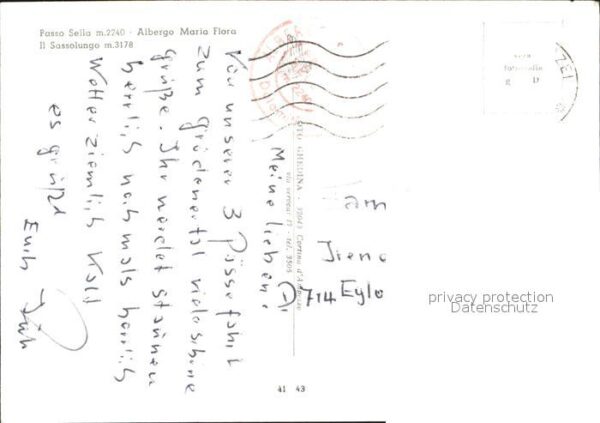 Passo Sella m.2240 - Albergo Maria Flora
Il Sassolungo m.3178
Meine Lieben!
Von unserer 3 Pässefahrt
zum Grödnertal viele schöne
Grüße. Ihr werdet staunen
herrlich nochmals herrlich
Wetter ziemlich kalt
es grüßt
Euch
FOTO GHEDINA - 32043 Cortina d'Ampezzo
Irene
714 Eylo
vera
fotografia
41 43
privacy protection
Datenschutz